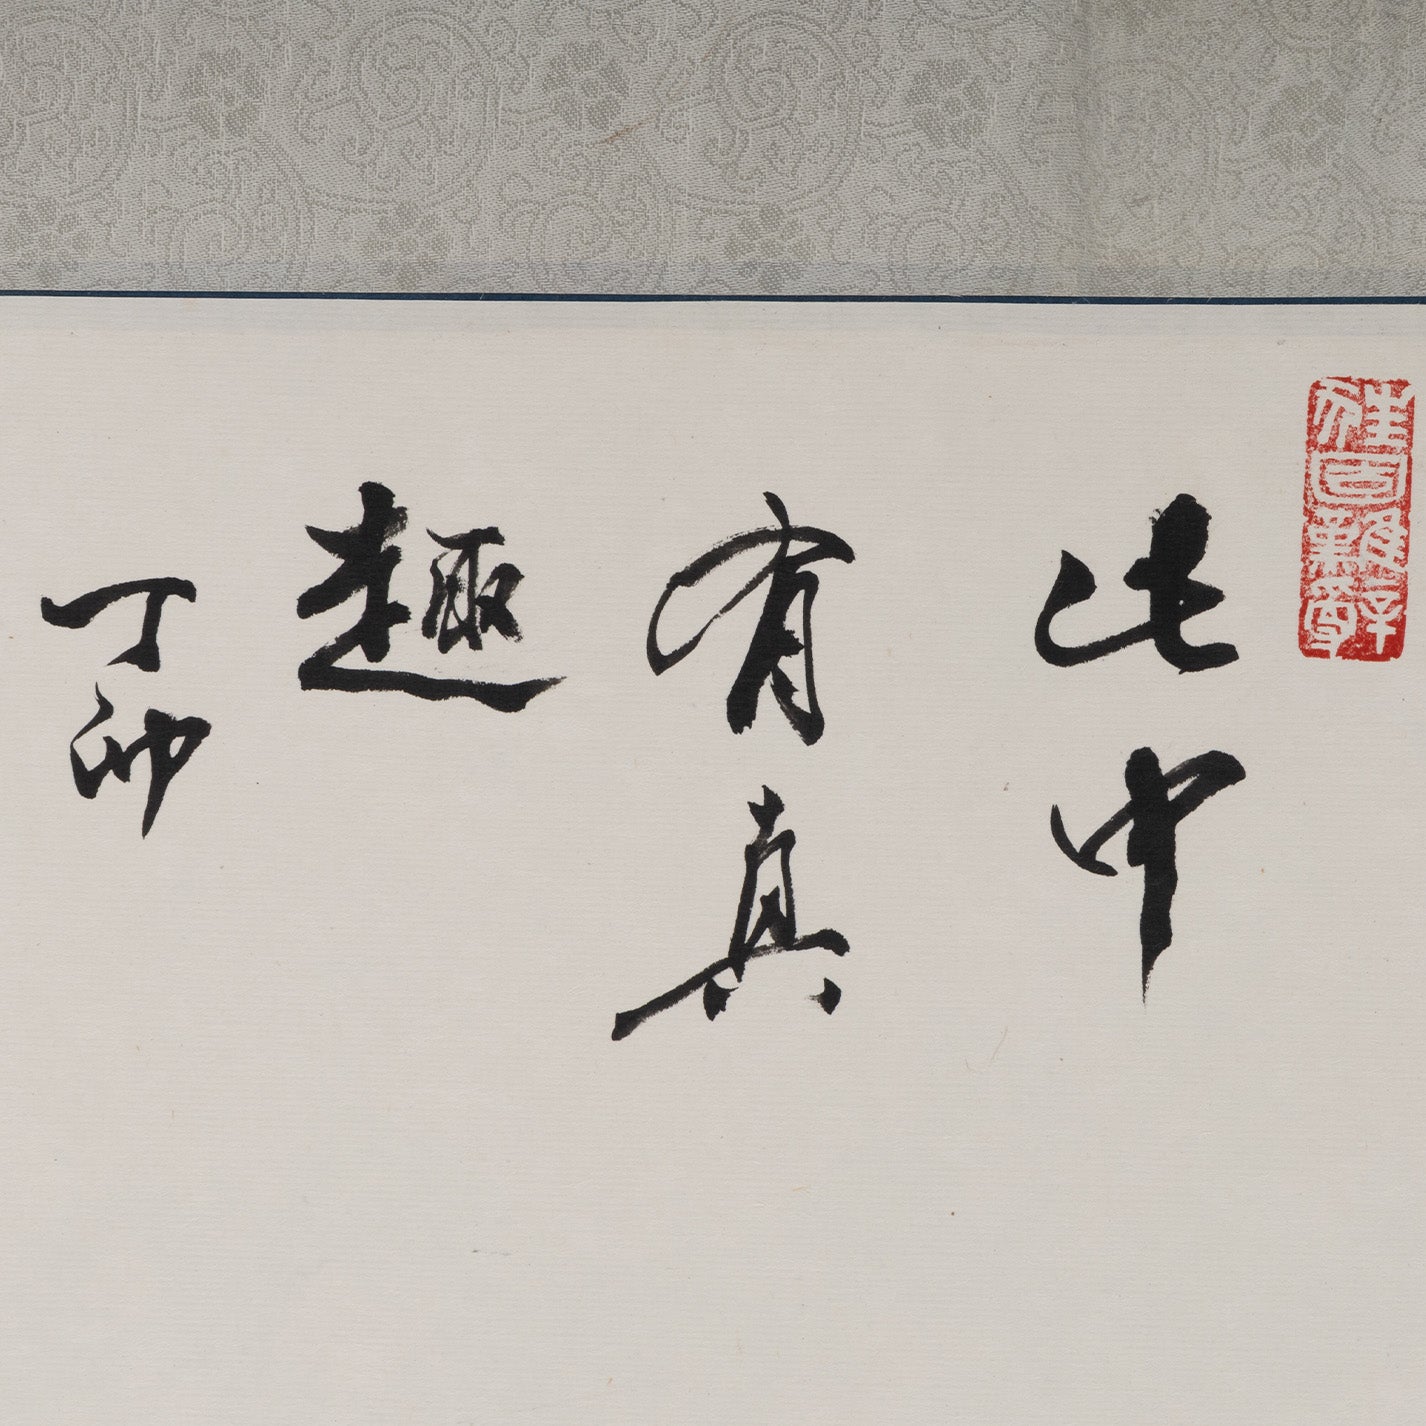 此中
有真
趣
丁卯